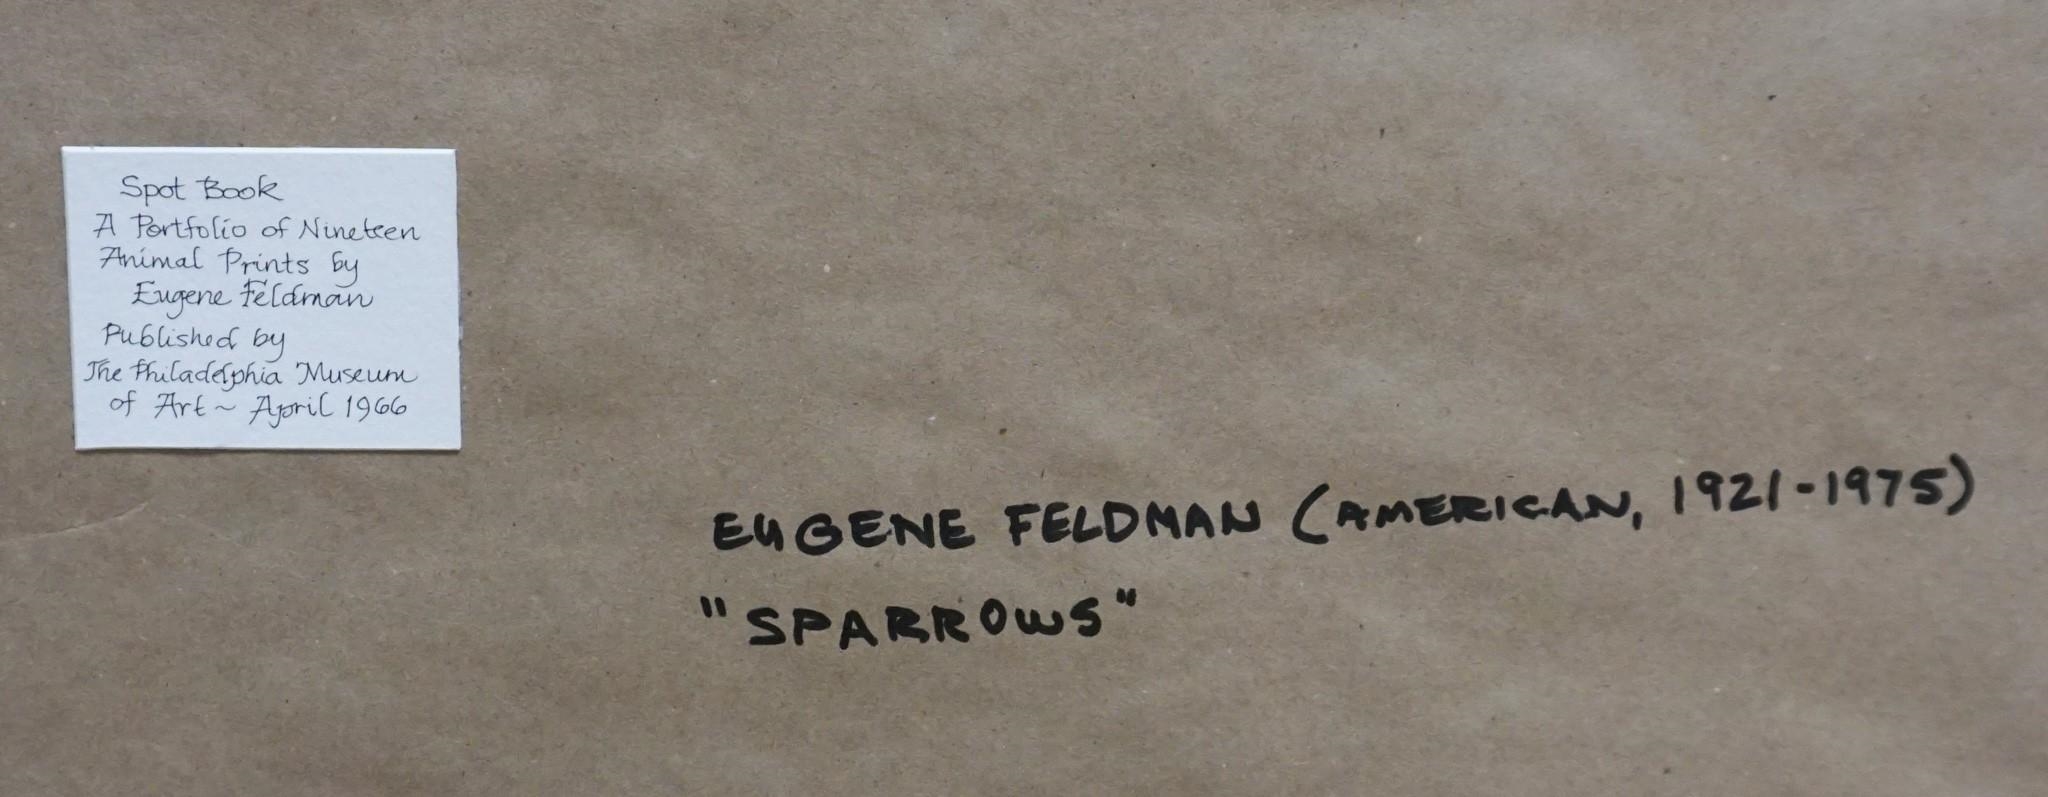 Spot Book
A Portfolio of Nineteen
Animal Prints by
Eugene Feldman
Published by
The Philadelphia Museum
of Art ~ April 1966
EUGENE FELDMAN (AMERICAN, 1921-1975)
"SPARROWS"